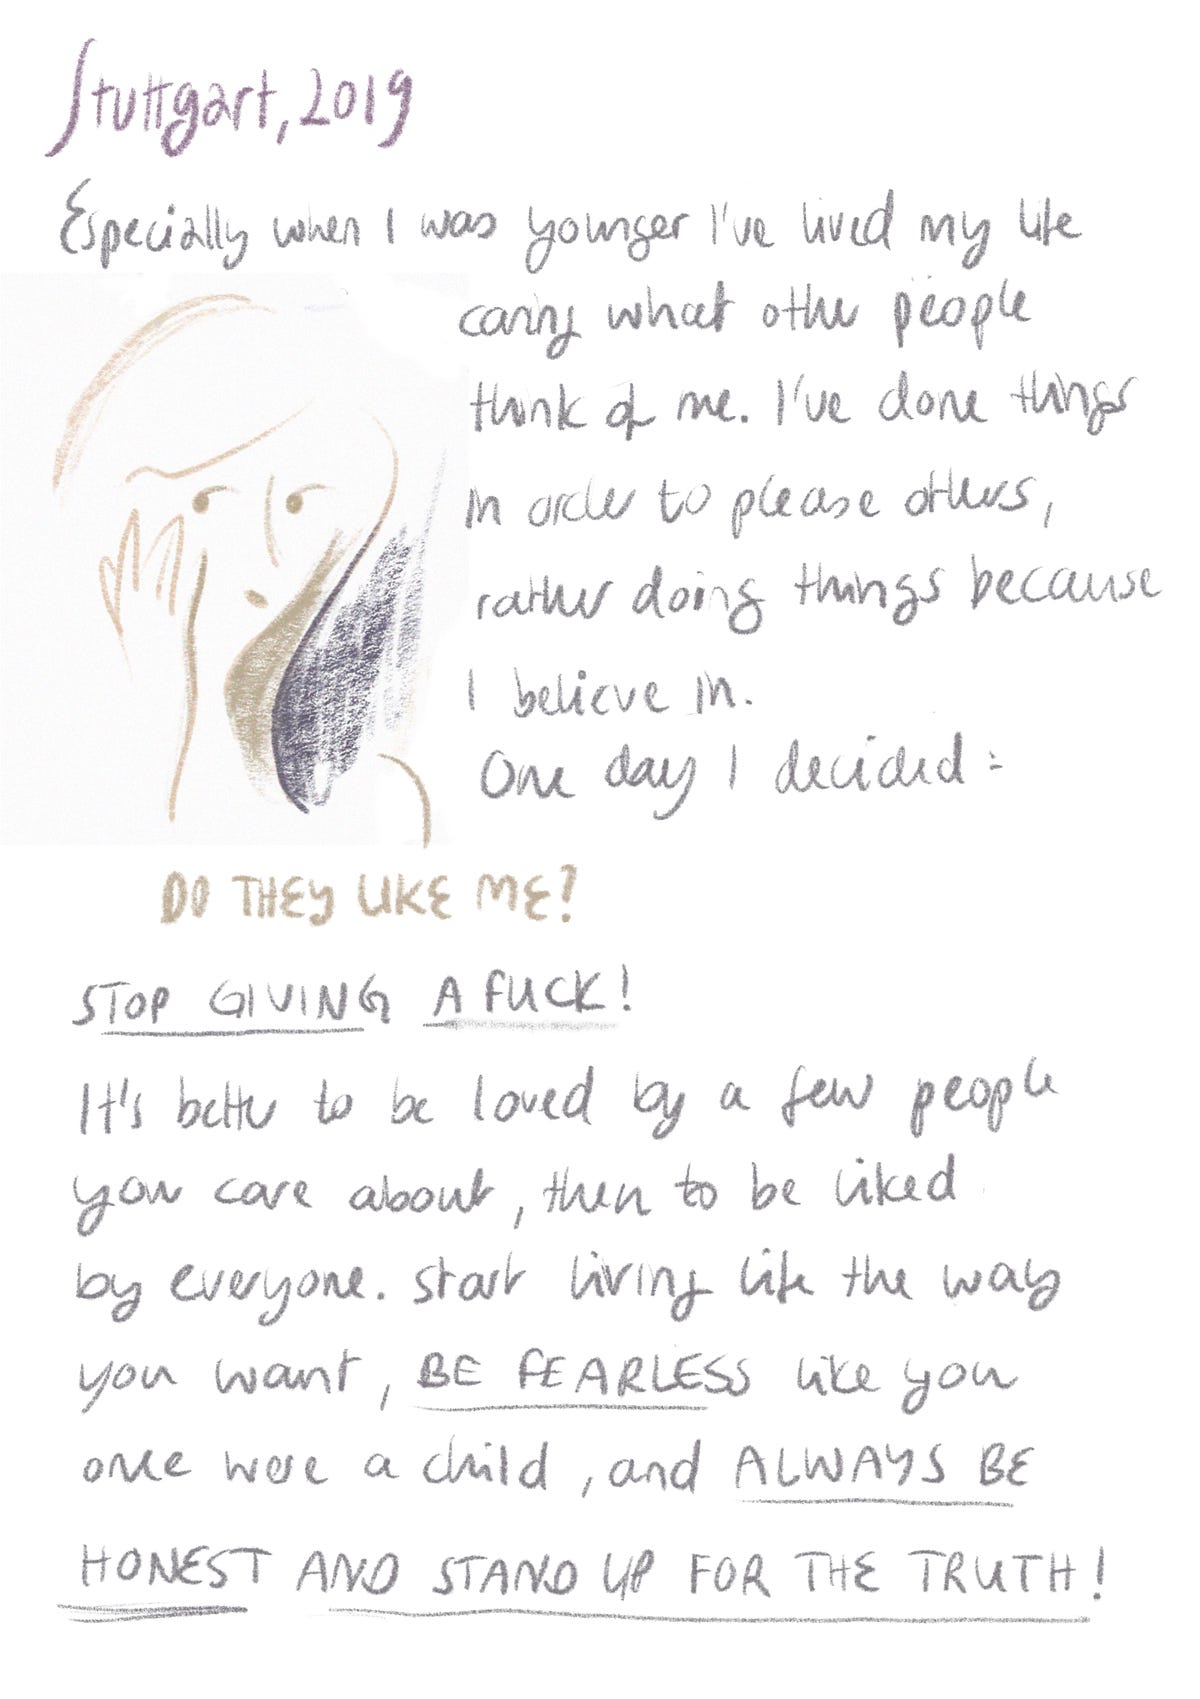 Stuttgart, 2019
Especially when I was younger I've lived my life
caring what other people
think of me. I've done things
in order to please others,
rather doing things because
I believe in.
One day I decided:
DO THEY LIKE ME?
STOP GIVING A FUCK!
It's better to be loved by a few people
you care about, then to be liked
by everyone. Start living life the way
you want, BE FEARLESS like you
once were a child, and ALWAYS BE
HONEST AND STAND UP FOR THE TRUTH!